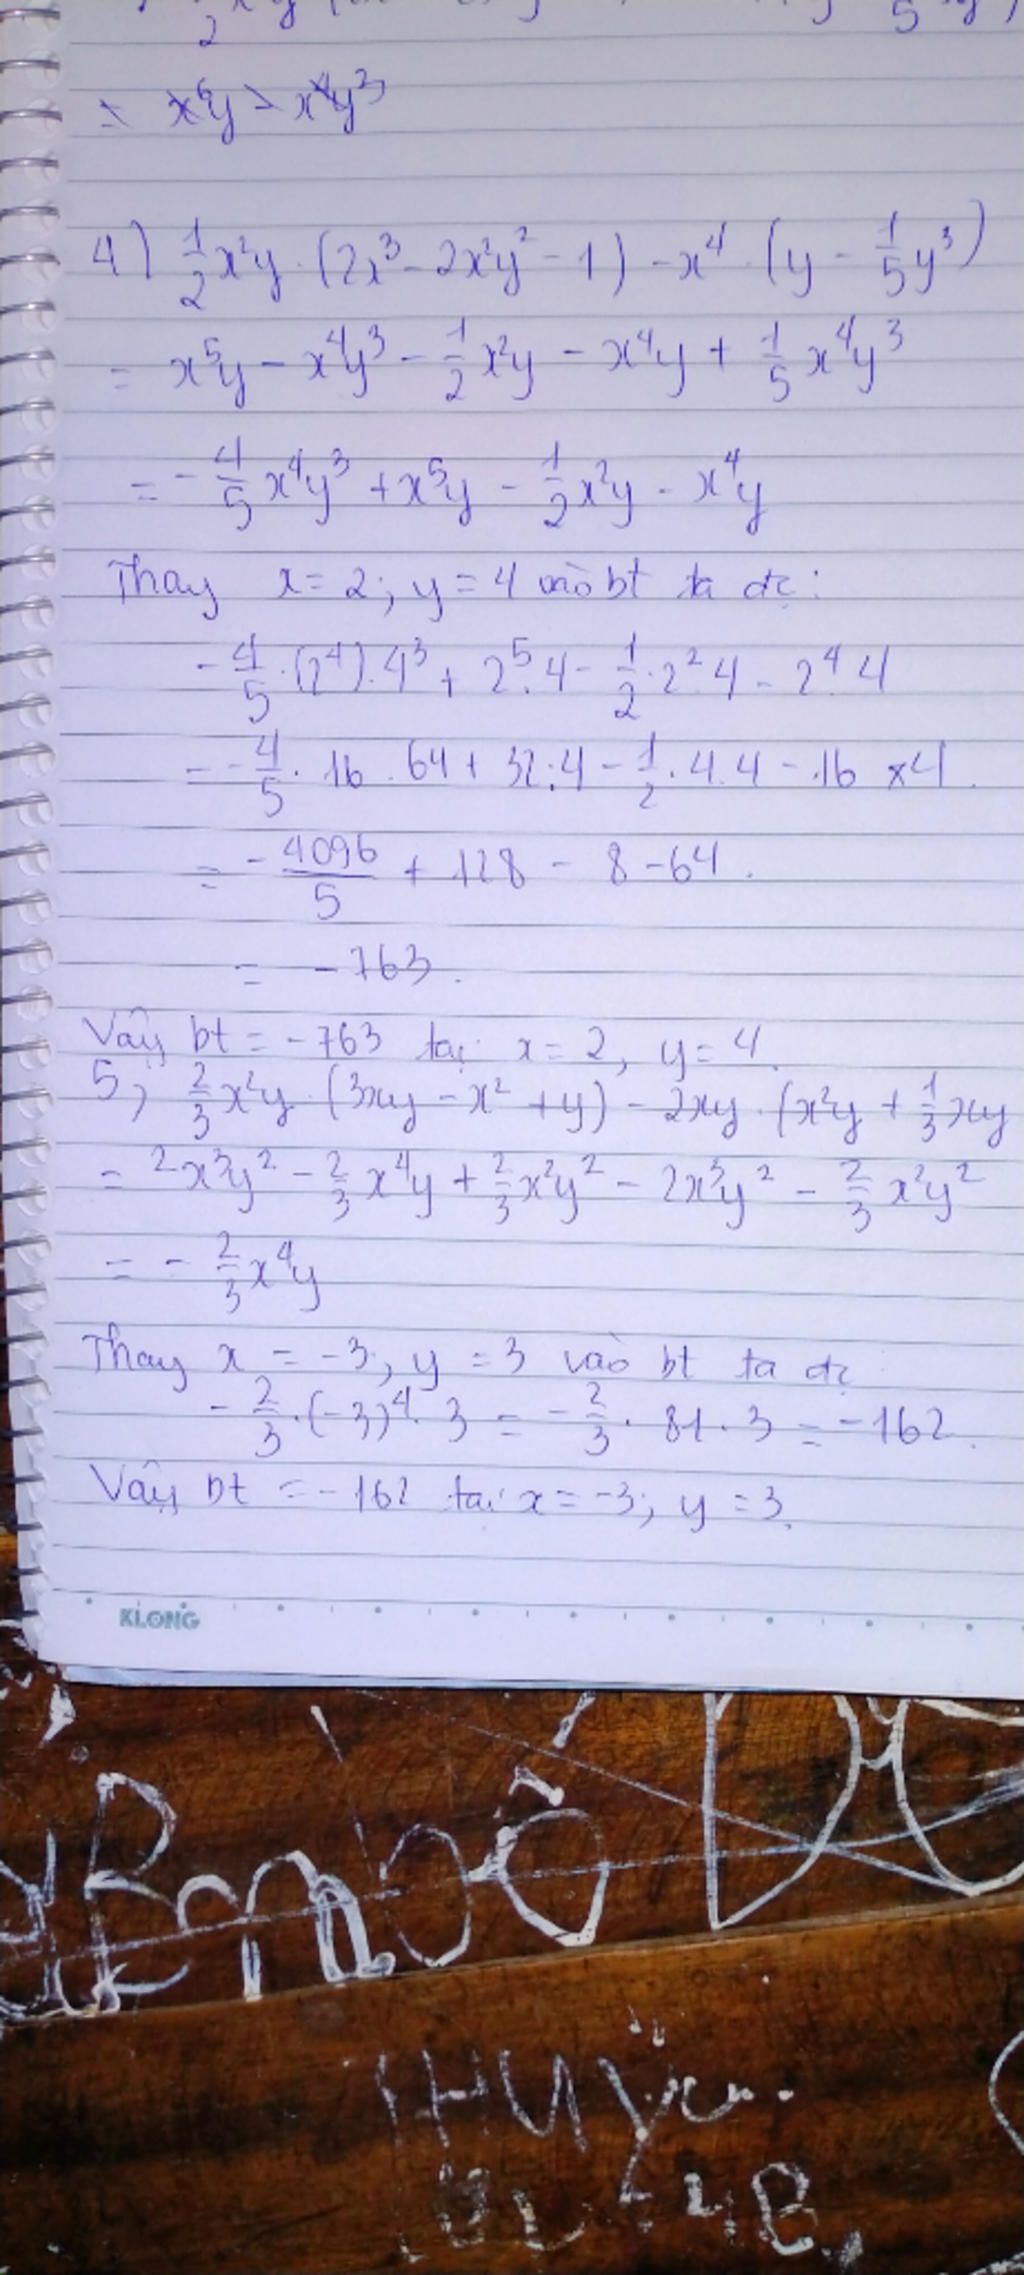 = x⁶y - x⁴y³
4) 1/2 x²y . (2x³ - 2x²y² - 1) - x⁴ . (y - 1/5 y³)
= x⁵y - x⁴y³ - 1/2 x²y - x⁴y + 1/5 x⁴y³
= - 4/5 x⁴y³ + x⁵y - 1/2 x²y - x⁴y
Thay x = 2; y = 4 vào bt ta đc:
- 4/5 . (2⁴) . 4³ + 2⁵.4 - 1/2 . 2².4 - 2⁴.4
= - 4/5 . 16 . 64 + 32.4 - 1/2 . 4.4 - 16 x 4.
= - 4096/5 + 128 - 8 - 64.
= - 763.
Vậy bt = - 763 tại x = 2, y = 4.
5) 2/3 x²y . (3xy - x² + y) - 2xy . (x²y + 1/3 xy
= 2x³y² - 2/3 x⁴y + 2/3 x²y² - 2x³y² - 2/3 x²y²
= - 2/3 x⁴y
Thay x = -3, y = 3 vào bt ta đc
- 2/3 . (-3)⁴ . 3 = - 2/3 . 81 . 3 = -162.
Vậy bt = - 162 tại x = -3; y = 3.
KLONG